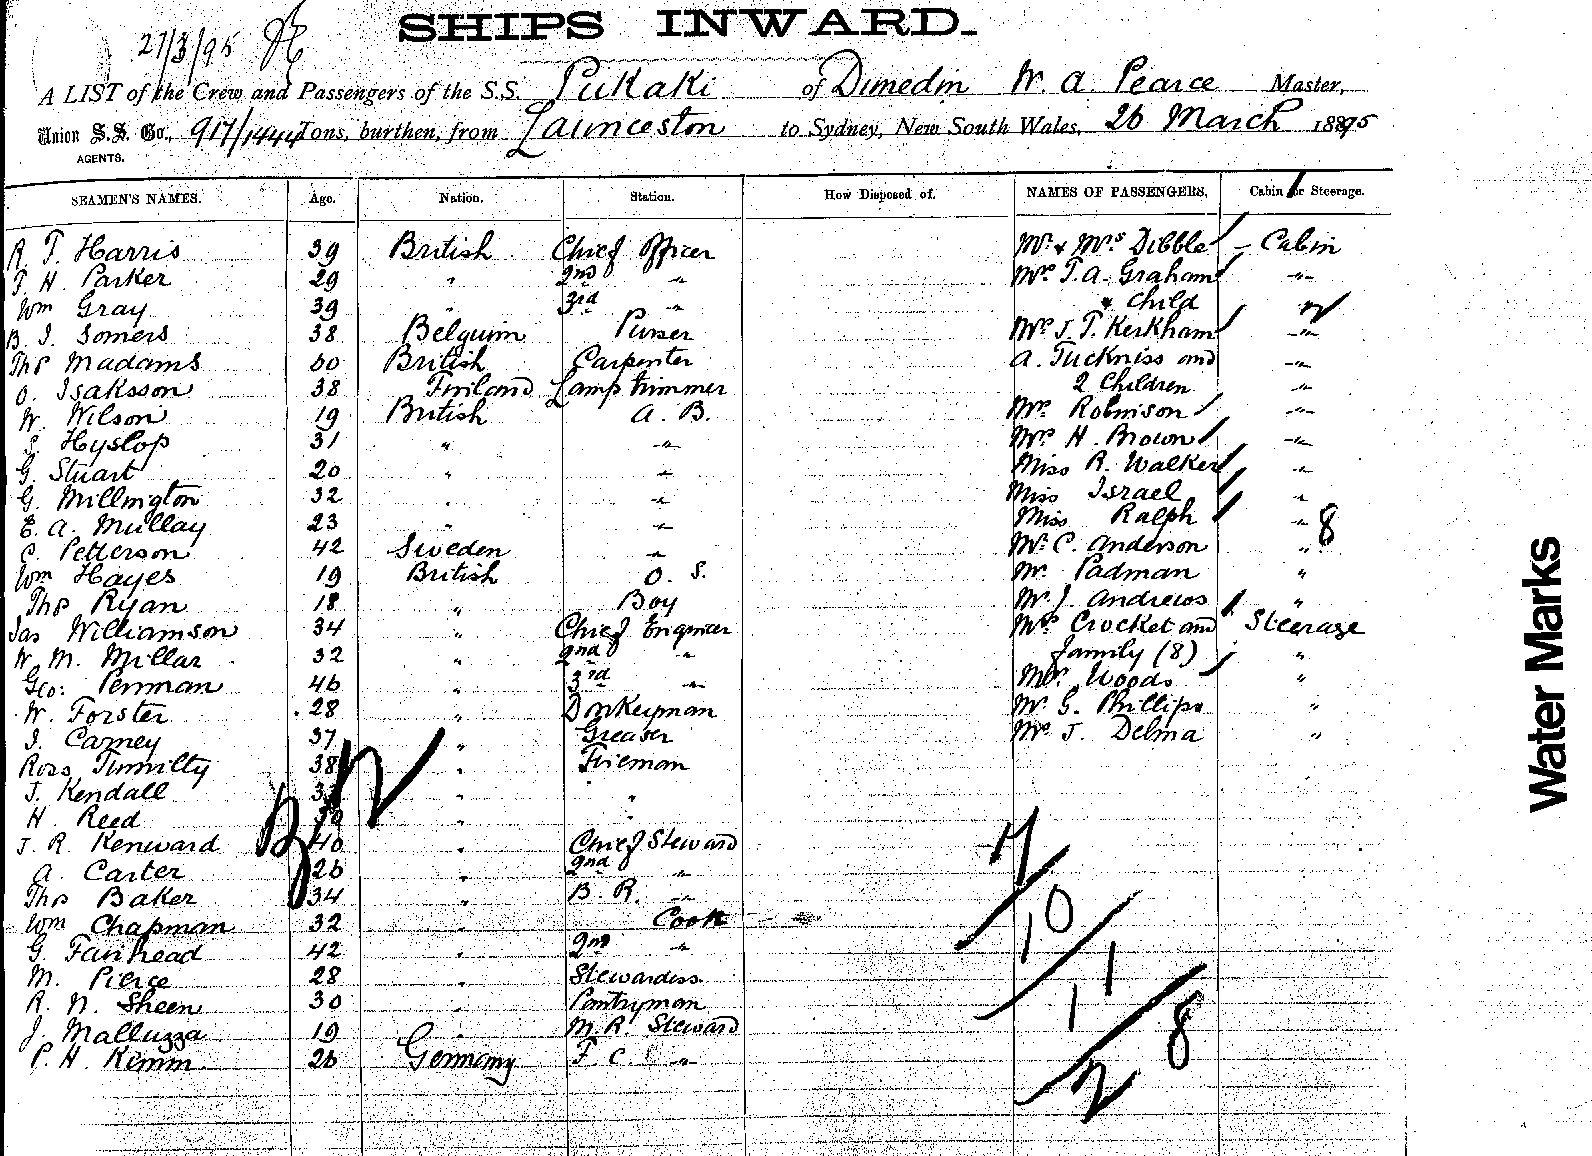 27/3/95
SHIPS INWARD.
A LIST of the Crew and Passengers of the S.S. Pukaki of Dunedin W. A. Pearce Master,
Union S.S. Co., 917/1444 Tons, burthen, from Launceston to Sydney, New South Wales, 26 March 1895
AGENTS.
SEAMEN'S NAMES. Age. Nation. Station. How Disposed of. NAMES OF PASSENGERS. Cabin or Steerage.
R. T. Harris 39 British Chief Officer Mr & Mrs Dibble – Cabin
T. H. Parker 29 " 2nd " Mrs T. A. Graham "
Wm Gray 39 " 3rd " & Child
B. I. Somers 38 Belguim Purser Mrs J. T. Kerkham "
Thos Madams 60 British Carpenter A. Tuckniss and "
O. Isaksson 38 Finland Lamp trimmer 2 Children "
W. Wilson 19 British A. B. Mrs Robinson "
S. Hyslop 31 " " Mrs H. Brown "
G. Stuart 20 " " Miss R. Walker "
G. Millington 32 " " Miss Israel "
E. A. Mullay 23 " " Miss Ralph " 8
C. Petterson 42 Sweden " Mr C. Anderson "
Wm Hayes 19 British O. S. Mr Padman "
Thos Ryan 18 " Boy Mr J. Andrews "
Jas Williamson 34 " Chief Engineer Mrs Crocket and Steerage
W. M. Millar 32 " 2nd " family (8) "
Geo: Penman 46 " 3rd " Woods "
W. Forster 28 " Donkeyman Mr G. Phillips "
J. Carney 37 " Greaser J. Delma "
Ross Tumilty 38 " Fireman
J. Kendall " "
H. Reed " "
J. R. Kenward 40 " Chief Steward
A. Carter 26 " 2nd "
Thos Baker 34 " B. R. "
Wm Chapman 32 " Cook
G. Fairhead 42 " 2nd "
M. Pierce 28 " Stewardess
R. N. Sheen 30 " Pantryman
J. Malluzza 19 " M. R. Steward
P. H. Kemm. 26 Germany F. C. "
10
11
8
2
Water Marks